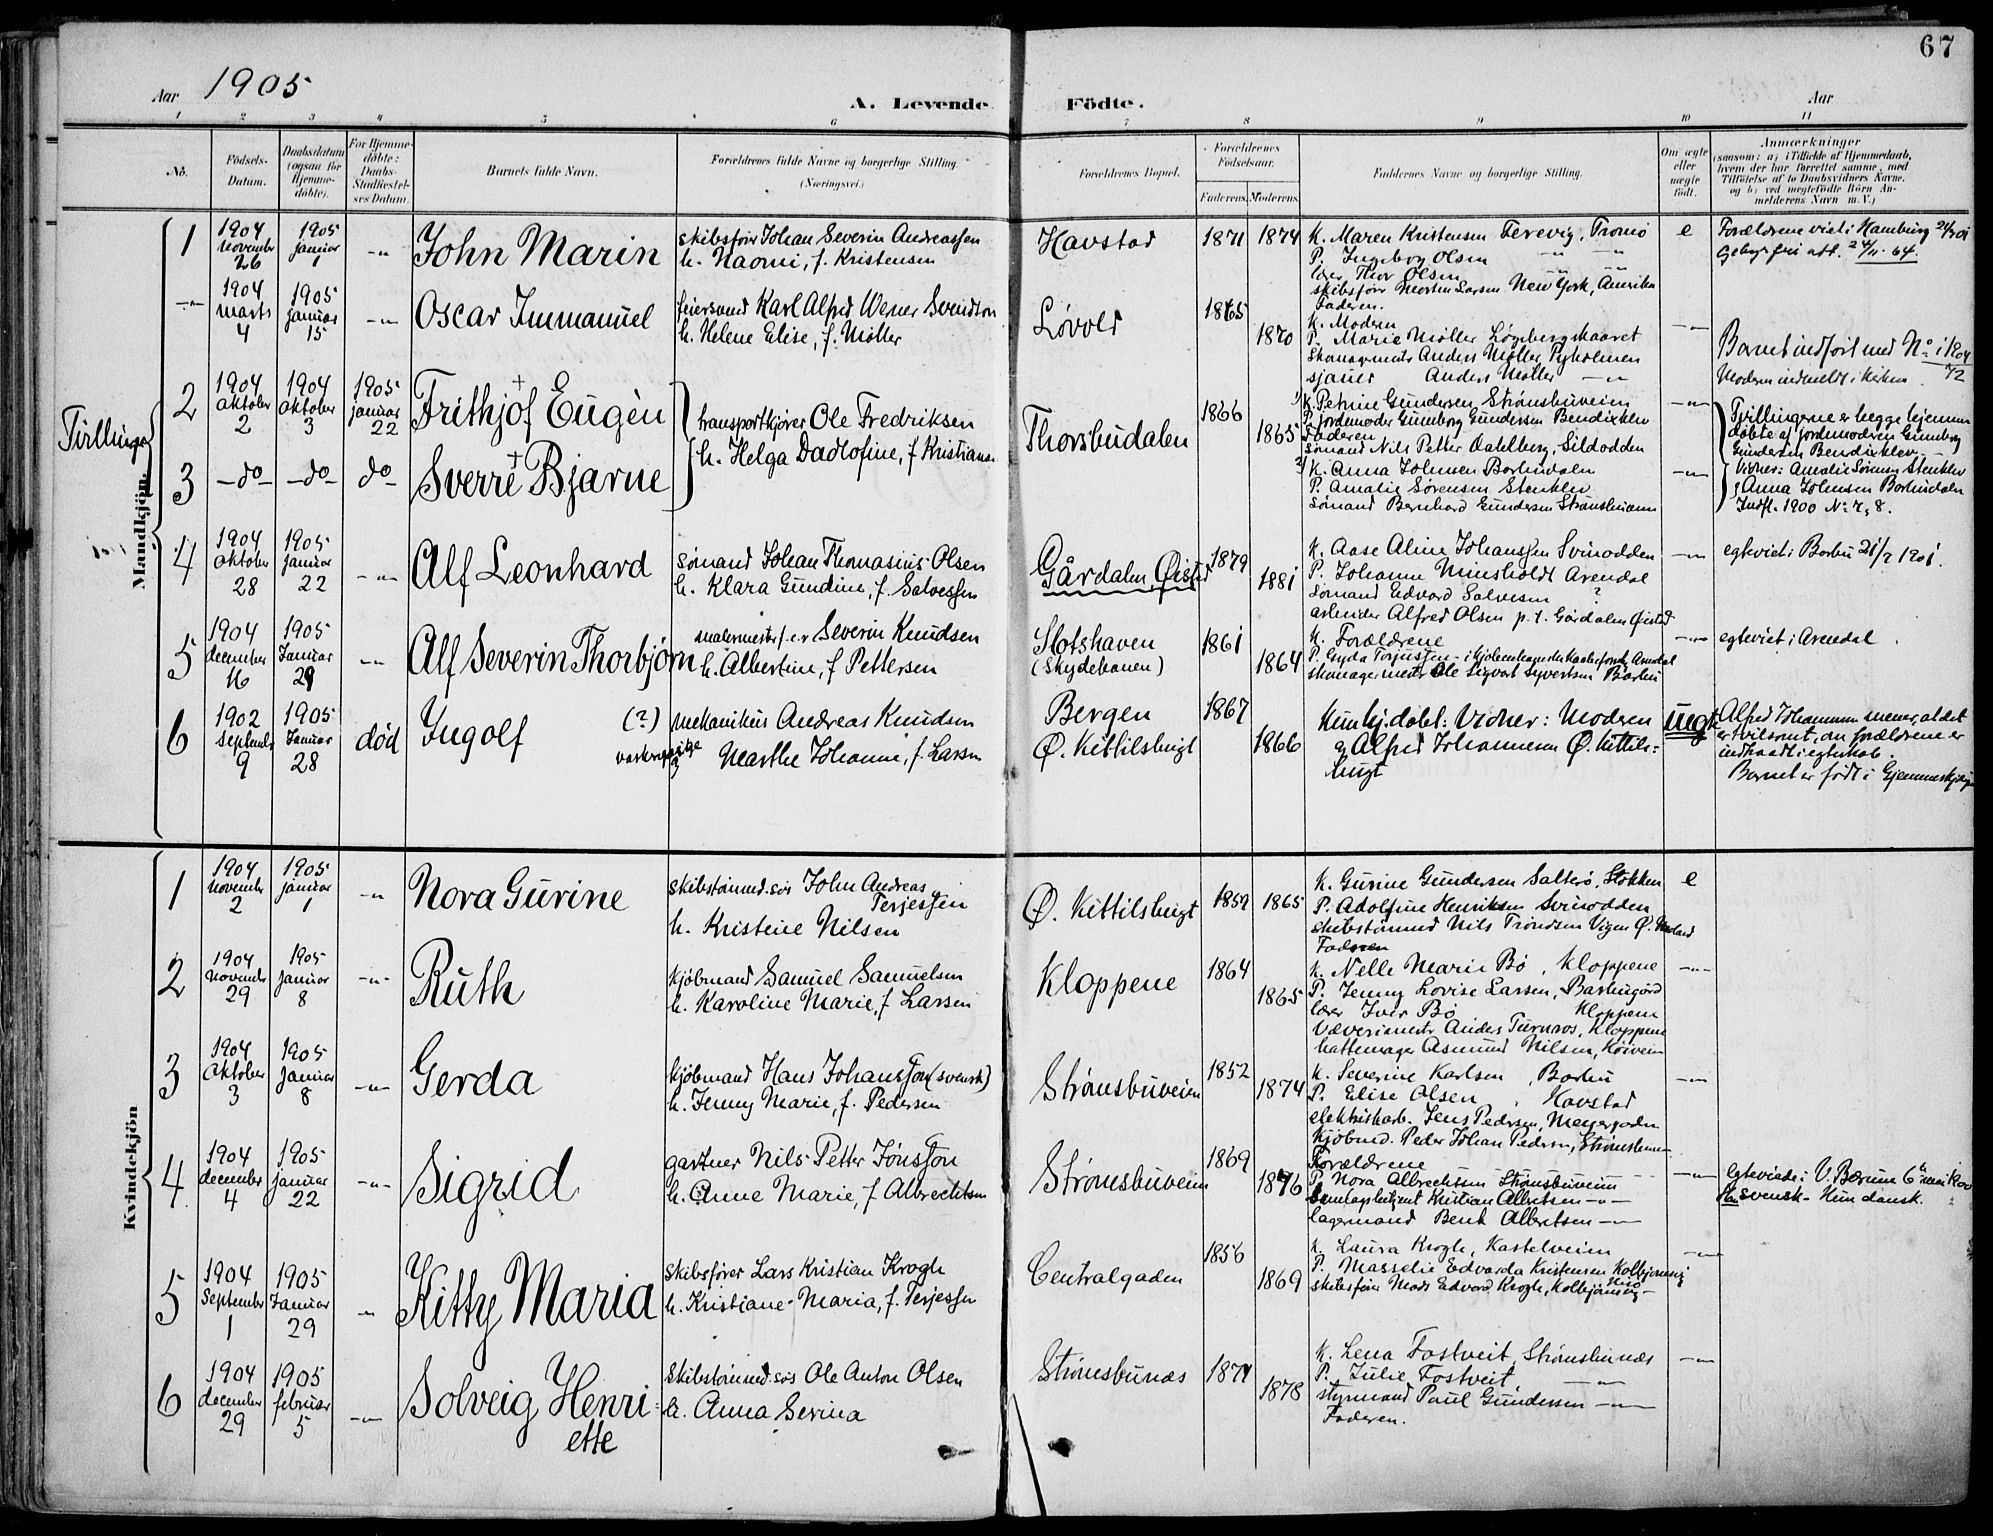 67
Aar 1905
A. Levende Födte.
Aar
1 2 3 4 5 6 7 8 9 10 11
No.
Födsels-Datum.
Daabsdatum (ogsaa for Hjemme-döbte).
For Hjemme-döbte: Daabs-Stadfæstel-ses Datum.
Barnets fulde Navn.
Forældrenes fulde Navne og borgerlige Stilling.
(Næringsvei.)
Forældrenes Bopæl.
Forældrenes Födselsaar.
Faderens. Moderens.
Faddernes Navne og borgerlige Stilling.
Om ægte eller uægte födt.
Anmærkninger
(saasom: a) i Tilfælde af Hjemmedaab,
hvem der har forrettet samme, med
Tilföielse af to Daabsvidners Navne,
og b) ved uægtefödte Börn An-
melderens Navn m. V.)
Mandkjön.
1
1904 november 26
1905 januar 1
-"-
John Marin
skibsfører Johan Severin Andreassen
h. Naomi, f. Kristensen
Havstad
1871 1874
K. Maren Kristensen Færevig, Tromø
P. Ingeborg Olsen -"- -"-
lærer Thor Olsen -"- -"-
skibsfører Morten Larsen New York, Amerika
Faderen.
e
Forældrene viet i Hamburg
-"-
1904 marts 4
1905 januar 15
-"-
Oscar Immanuel
feiersvend Karl Alfred Werner Svendsen
h. Helene Elise, f. Møller
Løvold
1865
1870
K. Moderen
P. Marie Møller
Anders Møller
sjauer Anders Møller -"-
-"-
Barnet indført med No i 1904
Moderen indmeldt i kirken
Tvillinger
2
1904 oktober 2
1904 oktober 3
1905 januar 22
+
Frithjof Eugèn
transportkjører Ole Fredriksen
h. Helga Dadlofine, f. Kristians
Thorsbudalen
1866
1865
1) K. Petrine Gundersen Strømsbuveien
P. jordemoder Gunborg Gundersen Bendiksklev
Faderen
Sømand Nils Petter Dahlberg, Sildodden
-"-
Tvillingerne er begge hjemme
døbte af jordemoderen Gunborg
Gundersen Bendiksklev
3
-do- -do- do
+
Sverre Bjarne
2) K. Anna Johnsen Barbudalen
P. Amalie Sørensen Stenklev
Sømand Bernhard Gundersen Strømsbuveien
-"-
Vidner: Amalie Sørensen Stenklev
& Anna Johnsen Barbudalen
Indfl. 1900 No 7, 8.
4
1904 oktober 28
1905 januar 22
-"-
Alf Leonhard
sømand Johan Thomasius Olsen
h. Klara Gundine, f. Salvessen
Gårdalen, Øisted
1879
1881
K. Aase Aline Johanssen Svinodden
P. Johanne Minsholdt Arendal
sømand Edvard Salvesen ?
arbeider Alfred Olsen p.t. Gårdalen Øisted
-"-
egteviet i Barbu 21/7 1901.
5
1904 december 16
1905 Januar 29
-"-
Alf Severin Thorbjørn
malermester f.e.v Severin Knudsen
h. Albertine, f. Pettersen
Slotshaven
(Skydebanen)
1861
1864
K. Forældrene
P. Gyda Torjussen Arendal
skomagermester Ole Sigvart Syvertsen Barbu
-"-
egteviet i Arendal
6
1902 september 9
1905 Januar 28
død
Ingolf
(?) mekanikus Andreas Knudsen
vaskepige Marthe Johanne, f. Larsen
Bergen
Ø. Kittilsbugt
1867
1866
Kun hj.døbt: Vidner: Moderen
& Alfred Johannesen Ø. Kittils-
bugt
uegte
Alfred Johannesen mener, at det
er tvilsomt, om forældrene er
indtraadt i egteskab.
Barnet er født i
Kvindekjön
1
1904 november 2
1905 januar 1
-"-
Nora Gurine
skibstømmd. søs John Andreas
Terjessen
h. Kristine Nilsen
Ø. Kittilsbugt
1859 1865
K. Gurine Gundersen Salterø, Stokken
P. Adolfine Henriksen Svinodden
skibstømmd Nils Trondsen Vigen Ø. Moland
Faderen
e
2
1904 november 29
1905 januar 8
-"-
Ruth
kjøbmand Samuel Samuelsen
h. Karoline Marie, f. Larsen
Kloppene
1864
1865
K. Nelle Marie Bø, Kloppene
P. Jenny Lovise Larsen, Barbugård
lærer Iver Bø Kloppene
Væverimester Anders Turnaos, Kloppene
hattemager Asmund Nilsen, Køivein
-"-
3
1904 Oktober 3
1905 Januar 8
-"-
Gerda
kjøbmand Hans Johansson (svensk)
h. Jenny Marie, f. Pedersen
Strømsbuveien
1852
1874
K. Severine Karlsen, Barbu
P. Elise Olsen, Havstad
elektrikarb. Jens Pedersen, Meyergaden
kjøbmd. Peder Johan Pedersen, Strømsbuveien
-"-
4
1904 december 4
1905 januar 22
-"-
Sigrid
gartner Nils Petter Jönsson
h. Anne Marie, f. Albrechtsen
Strømsbuveien
1869
1876
Forældrene
P. Nora Albrechtsen Strømsbuveien
Kristian Albretsen -"-
lagermand Bent Albretsen -"-
-"-
egteviede i V. Bærum
Han svensk - Hun dansk.
5
1904 September 1
1905 Januar 29
-"-
Kitty Maria
Skibsfører Lars Kristian Krogh
h. Kristiane Maria, f. Terjessen
Centralgaden
1856
1869
K. Laura Krogh, Kastelveien
P. Masselie Edvarda Kristensen Kolbjørnsvig
skibsfører Mads Edvard Krogh, Kolbjørnsvig
-"-
6
1904 december 29
1905 februar 5
-"-
Solveig Henri-
ette
Skibstømmd. søs Ole Anton Olsen
h. Anna Serina
Strømsbunæs
1871
1878
K. Lena Fostveit, Strømsbunæs
P. Julie Fostveit -"-
styrmand Paul Gundersen -"-
Faderen.
-"-